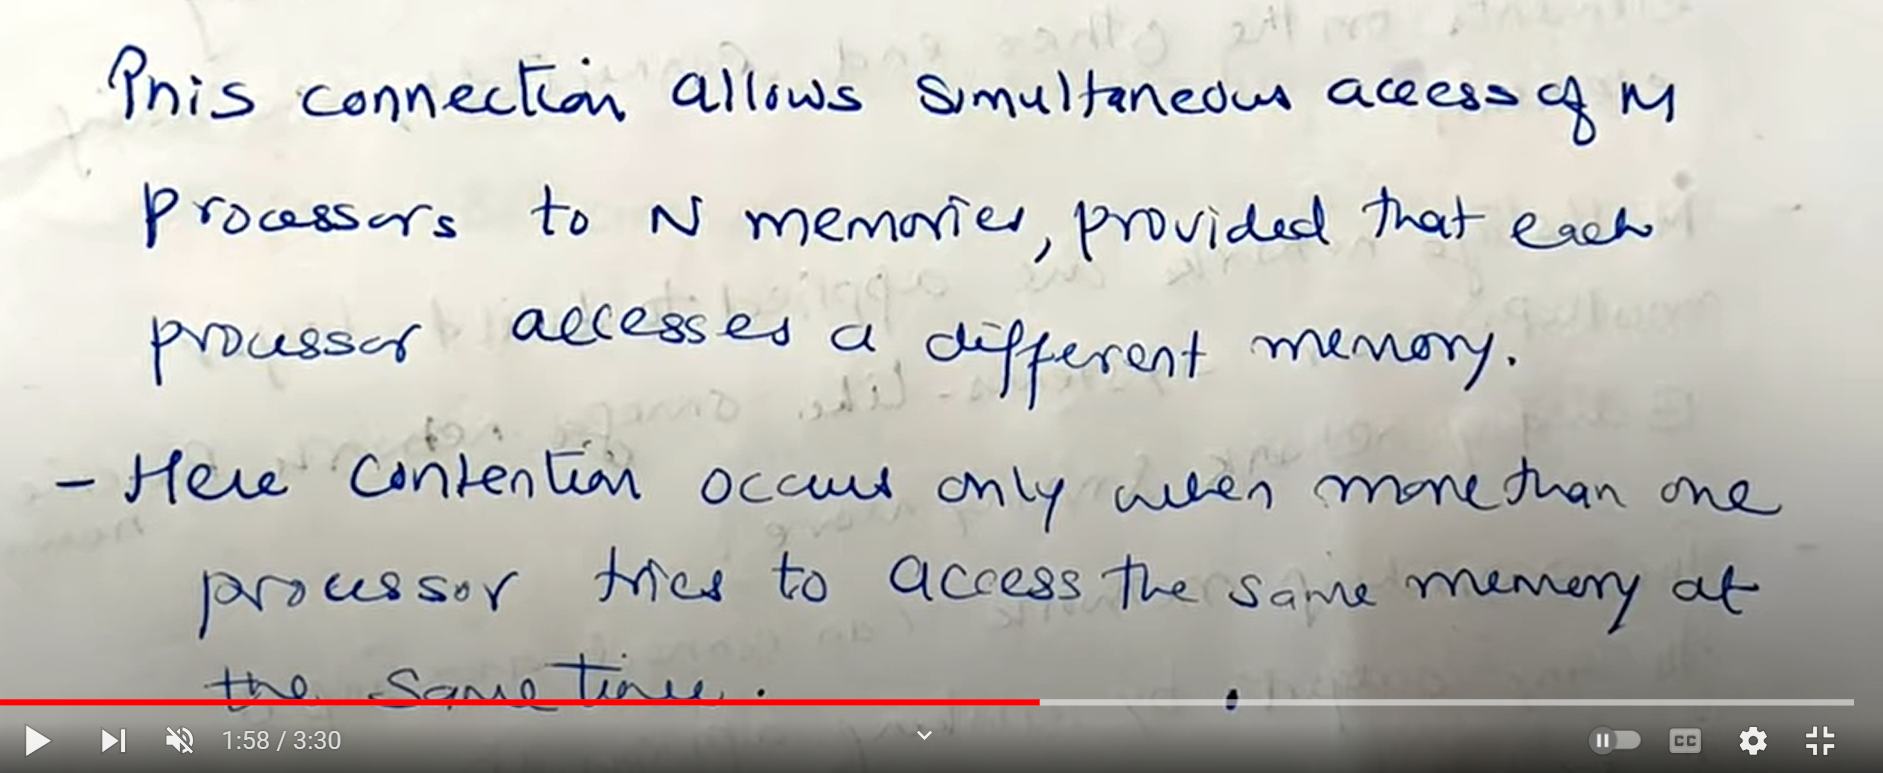 This connection allows simultaneous access of M
processors to N memories, provided that each
processor accesses a different memory.
- Here contention occurs only when more than one
processor tries to access the same memory at
the same time.
1:58 / 3:30
CC